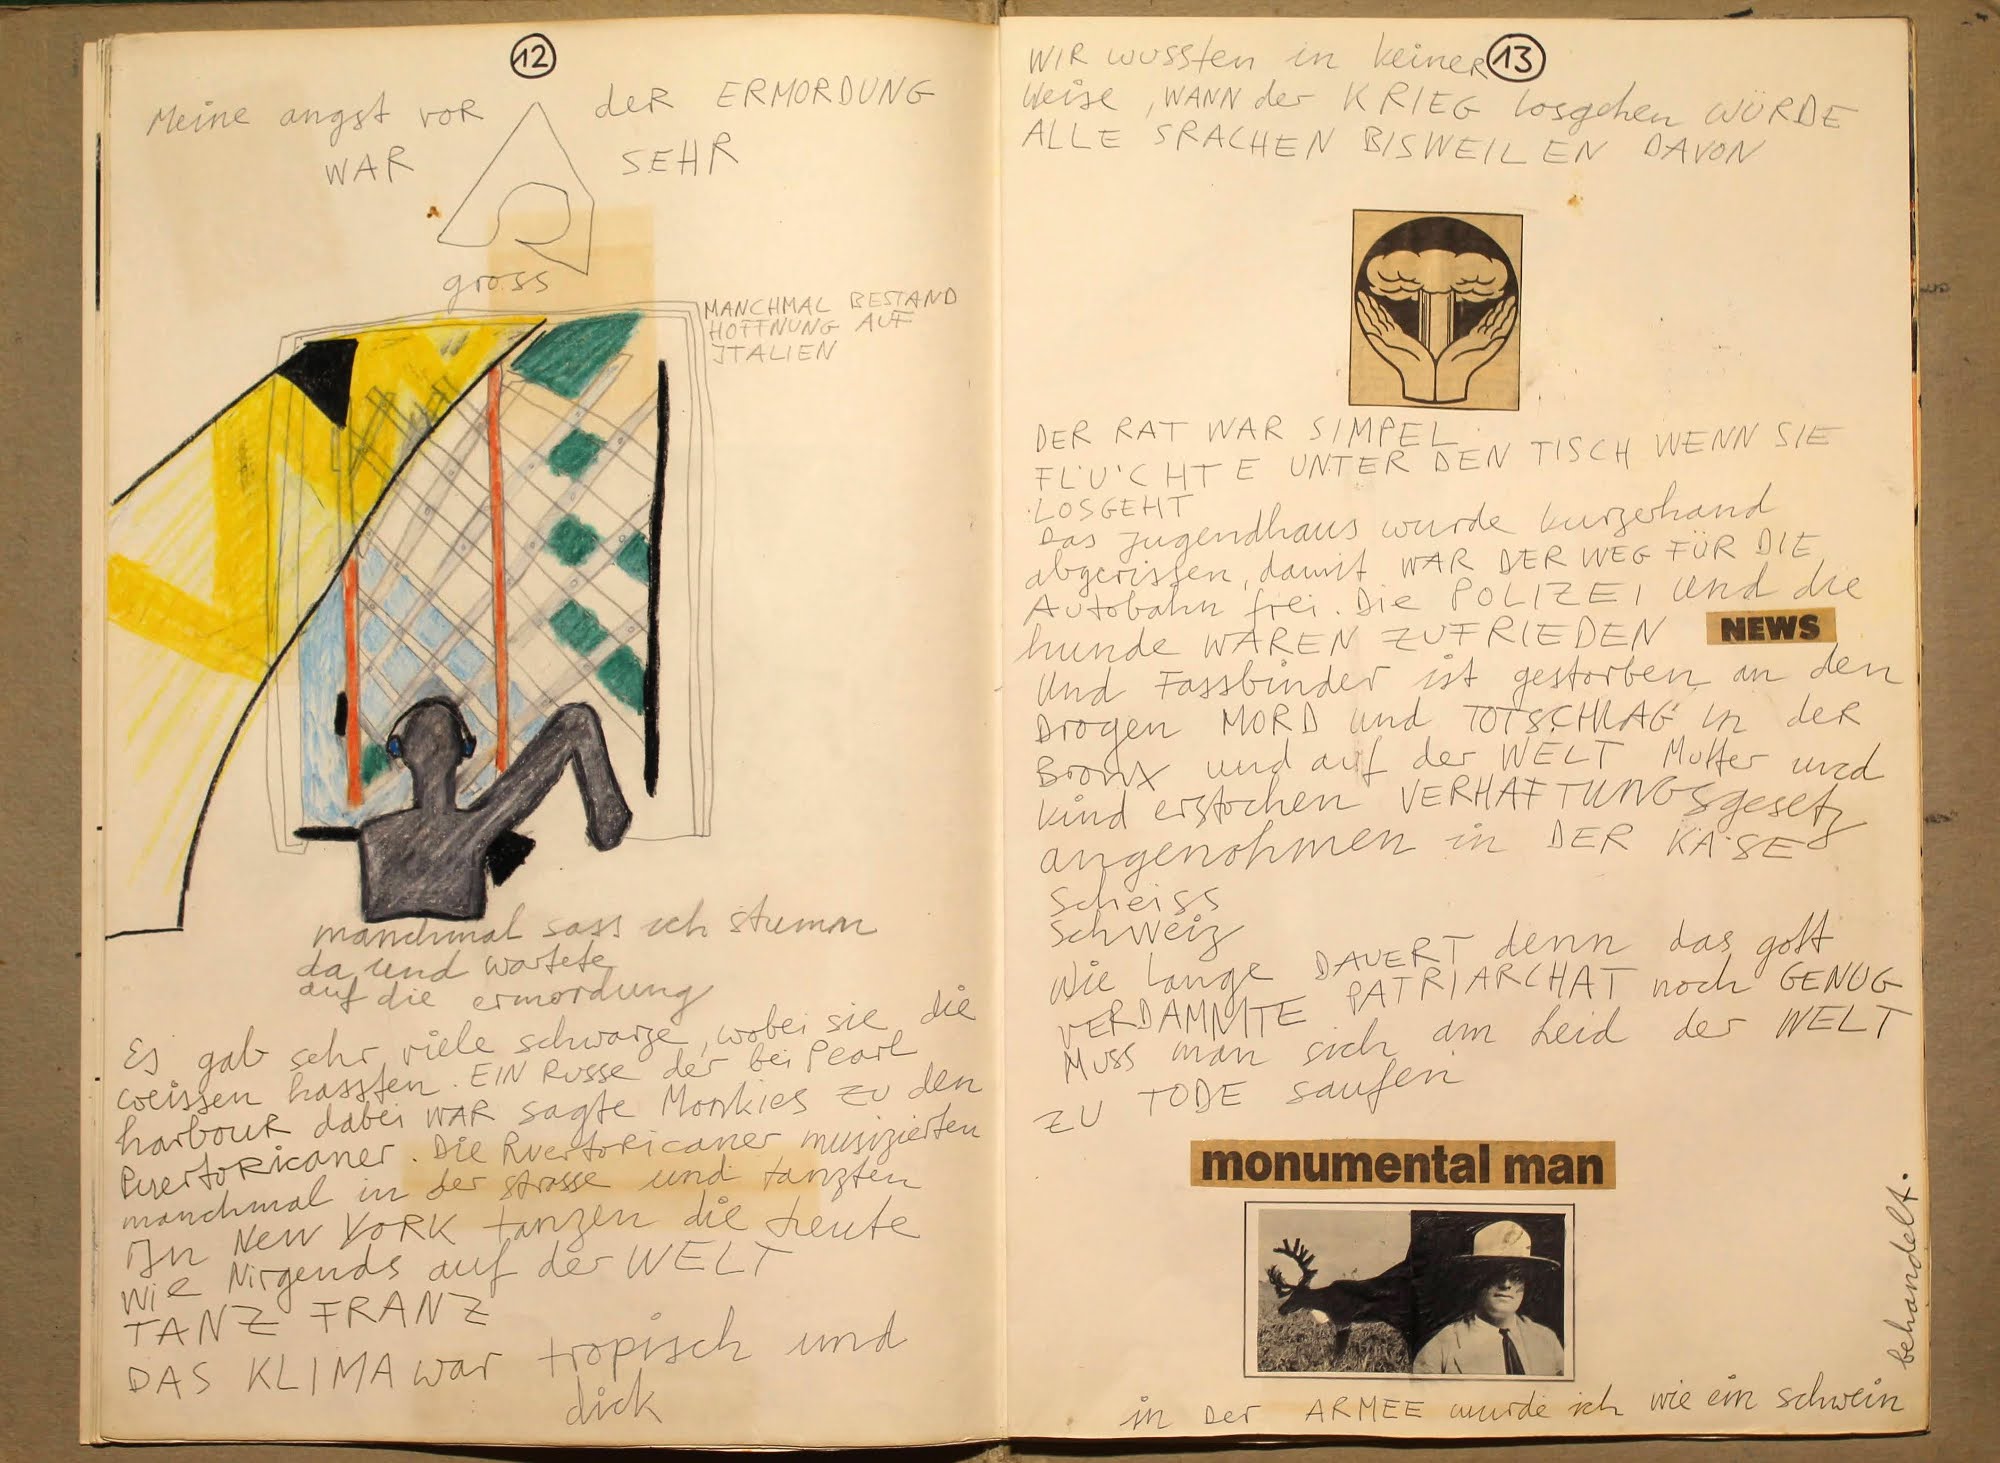 12
Meine angst vor der ERMORDUNG
WAR SEHR
gross
MANCHMAL BESTAND
HOFFNUNG AUF
ITALIEN
manchmal sass ich stumm
da und wartete
auf die ermordung
Es gab sehr viele schwarze, wobei sie die
weissen hassten. EIN RUSSE der bei Pearl
harbour dabei WAR sagte Monkies zu den
Puertoricaner. Die Puertoricaner musizierten
manchmal in der strasse und tanzten
In New YORK tanzen die heute
wie Nirgends auf der WELT
TANZ FRANZ
DAS KLIMA war tropisch und
dick
13
WIR wussten in keiner
Weise, WANN der KRIEG losgehen WÜRDE
ALLE SRACHEN BISWEILEN DAVON
DER RAT WAR SIMPEL
FLÜCHTE UNTER DEN TISCH WENN SIE
LOSGEHT
Das Jugendhaus wurde kurzerhand
abgerissen, damit WAR DER WEG FÜR DIE
Autobahn frei. Die POLIZEI und die
hunde WAREN ZUFRIEDEN
NEWS
Und Fassbinder ist gestorben an den
Drogen MORD und TOTSCHLAG in der
Bronx und auf der WELT Mutter und
kind erstochen VERHAFTUNGSgesetz
angenohmen in DER KÄSE
Scheiss
Schweiz
Wie lange DAUERT denn das gott
VERDAMMTE PATRIARCHAT noch GENUG
Muss man sich am Leid der WELT
ZU TODE saufen
monumental man
in der ARMEE wurde ich wie ein schwein
behandelt.